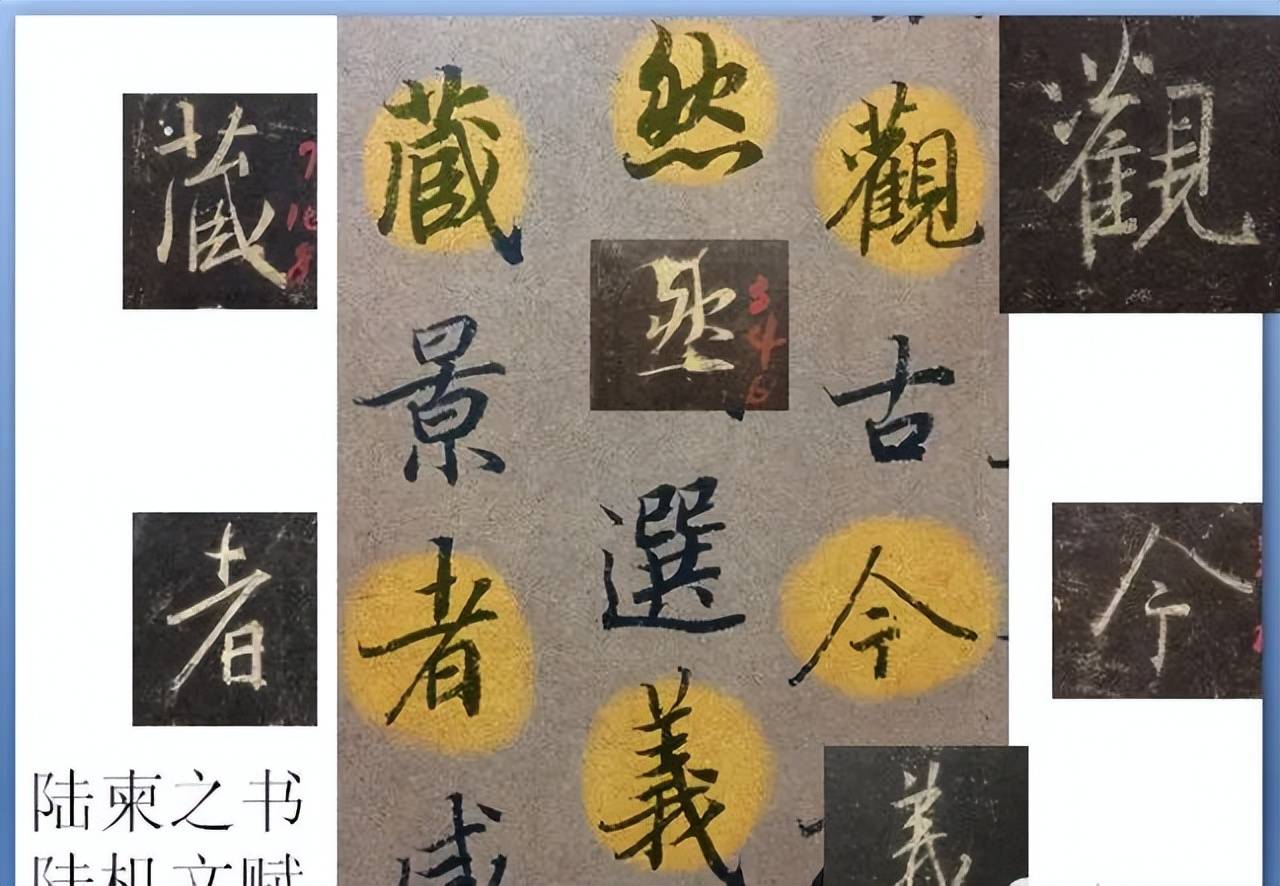 觀
今
義
觀古今
然選義
藏景者咸
然
藏
者
陆柬之书
陆机文赋